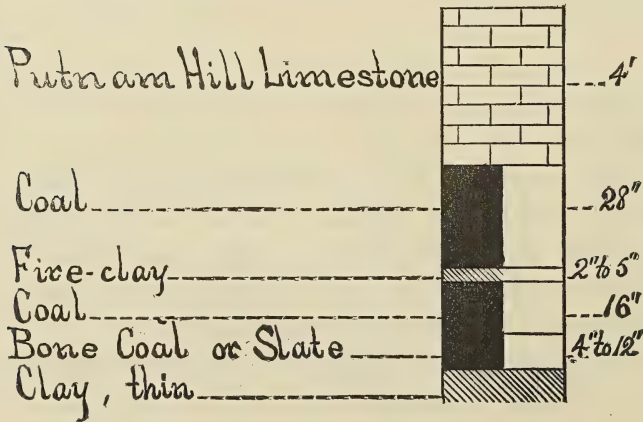 Putnam Hill Limestone 4'
Coal 28"
Fire-clay 2" to 5"
Coal 16"
Bone Coal or Slate 4" to 12"
Clay, thin